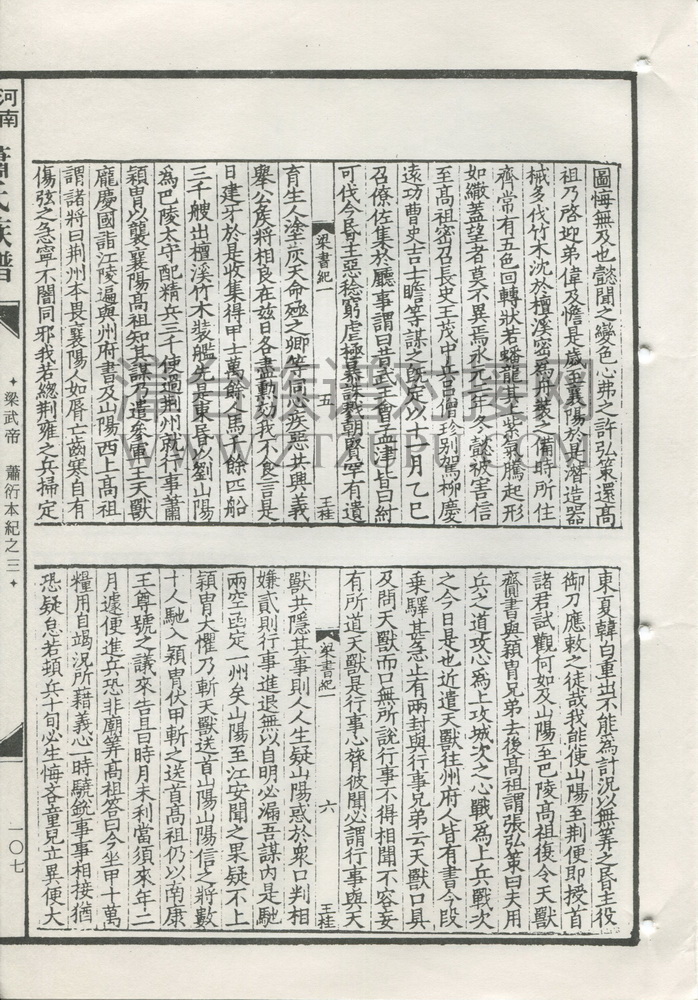 圖悔無及也懿聞之變色心弗之許弘策還高
祖乃啓迎弟偉及憺是歲至襄陽於是潛造器
械多伐竹木沈於檀溪密爲舟裝之備時所住
齊常有五色回轉狀若蟠龍其上紫氣騰起形
如繖蓋望者莫不異焉永元二年冬懿被害信
至高祖密召長史王茂中兵呂僧珍別駕柳慶
遠功曹史吉士瞻等謀之旣定以十一月乙巳
召僚佐集於廳事謂曰昔武王會孟津皆曰紂
可伐今昏主惡稔窮虐極暴誅戮朝賢罕有遺
梁書紀一
五
王桂
育生人塗炭天命殛之卿等同心疾惡共興義
舉公矦將相良在兹日各盡勳効我不食言是
日建牙於是收集得甲士萬餘人馬千餘匹船
三千艘出檀溪竹木裝艦先是東昏以劉山陽
爲巴陵太守配精兵三千使過荆州就行事蕭
穎胄以襲襄陽高祖知其謀乃遣參軍王天獸
龐慶國詣江陵遍與州府書及山陽西上高祖
謂諸將曰荆州本畏襄陽人如脣亡齒寒自有
傷弦之急寧不闇同邪我若緫荆雍之兵掃定
東夏韓白重出不能爲計況以無筭之昏主役
御刀應敕之徒哉我能使山陽至荆便即授首
諸君試觀何如及山陽至巴陵高祖復令天獸
齎書與穎胄兄弟去後高祖謂張弘策曰夫用
兵之道攻心爲上攻城次之心戰爲上兵戰次
之今日是也近遣天獸往州府人皆有書今段
乗驛甚急止有兩封與行事兄弟云天獸口具
及問天獸而口無所說行事不得相聞不容妄
有所道天獸是行事心膂彼聞必謂行事與天
梁書紀一
六
王桂
獸共隱其事則人人生疑山陽惑於衆口判相
嫌貳則行事進退無以自明必漏吾謀内是馳
兩空函定一州矣山陽至江安聞之果疑不上
穎胄大懼乃斬天獸送首山陽山陽信之將數
十人馳入穎胄伏甲斬之送首高祖仍以南康
王尊號之議來告且曰時月未利當須來年二
月遽便進兵恐非廟筭高祖答曰今坐甲十萬
糧用自竭況所藉義心一時驍銳事事相接猶
恐疑怠若頓兵十旬必生悔吝童兒立異便大
河南蕭氏族譜
梁武帝 蕭衍本紀之三
一〇七